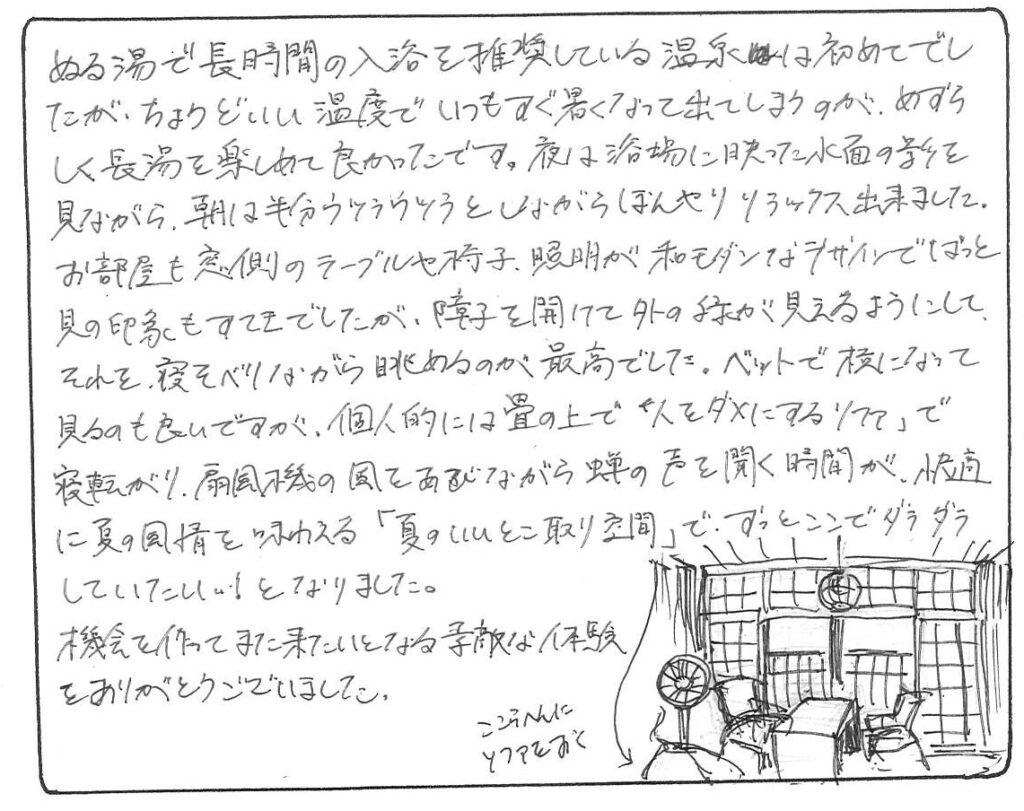 ぬる湯で長時間の入浴を推奨している温泉は初めてでし
たが、ちょうどいい温度でいつもすぐ暑くなって出てしまうのが、めずら
しく長湯を楽しめて良かったです。夜は浴場に映った水面の影を
見ながら、朝は半分ウツラウツラとしながらぼんやりリラックス出来ました。
お部屋も窓側のテーブルや椅子、照明が和モダンなデザインでぱっと
見の印象もすてきでしたが、障子を開けて外の緑が見えるようにして、
それを、寝そべりながら眺めるのが最高でした。ベットで横になって
見るのも良いですが、個人的には畳の上で「人をダメにするソファ」で
寝転がり、扇風機の風をあびながら蝉の声を聞く時間が、快適
に夏の風情を味わえる「夏のいいとこ取り空間」で、ずっとココでダラダラ
していたいい!となりました。
機会を作ってまた来たいとなる素敵な体験
をありがとうございました。
ここらへんに
ソファをおく